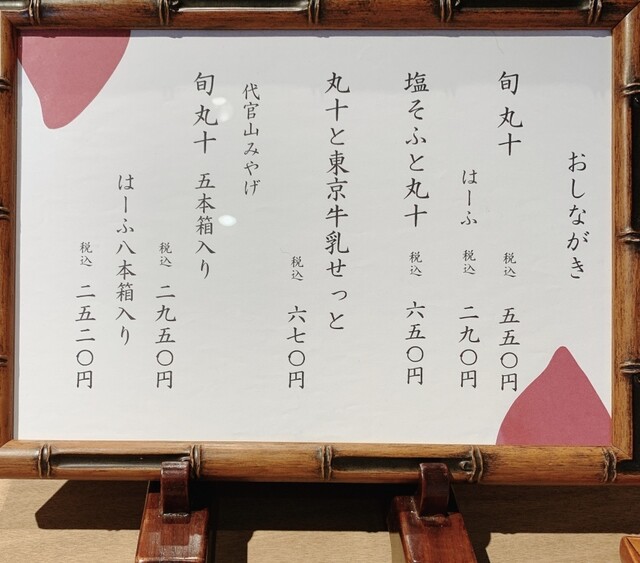 おしながき
旬 丸十 税込 五五〇円
はーふ 税込 二九〇円
塩そふと丸十 税込 六五〇円
丸十と東京牛乳せっと
税込 六七〇円
代官山みやげ
旬 丸十 五本箱入り
税込 二九五〇円
はーふ八本箱入り
税込 二五二〇円